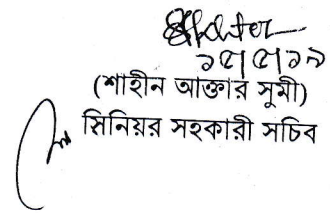 ১৫/৫/১৯
(শাহীন আক্তার সুমী)
সিনিয়র সহকারী সচিব